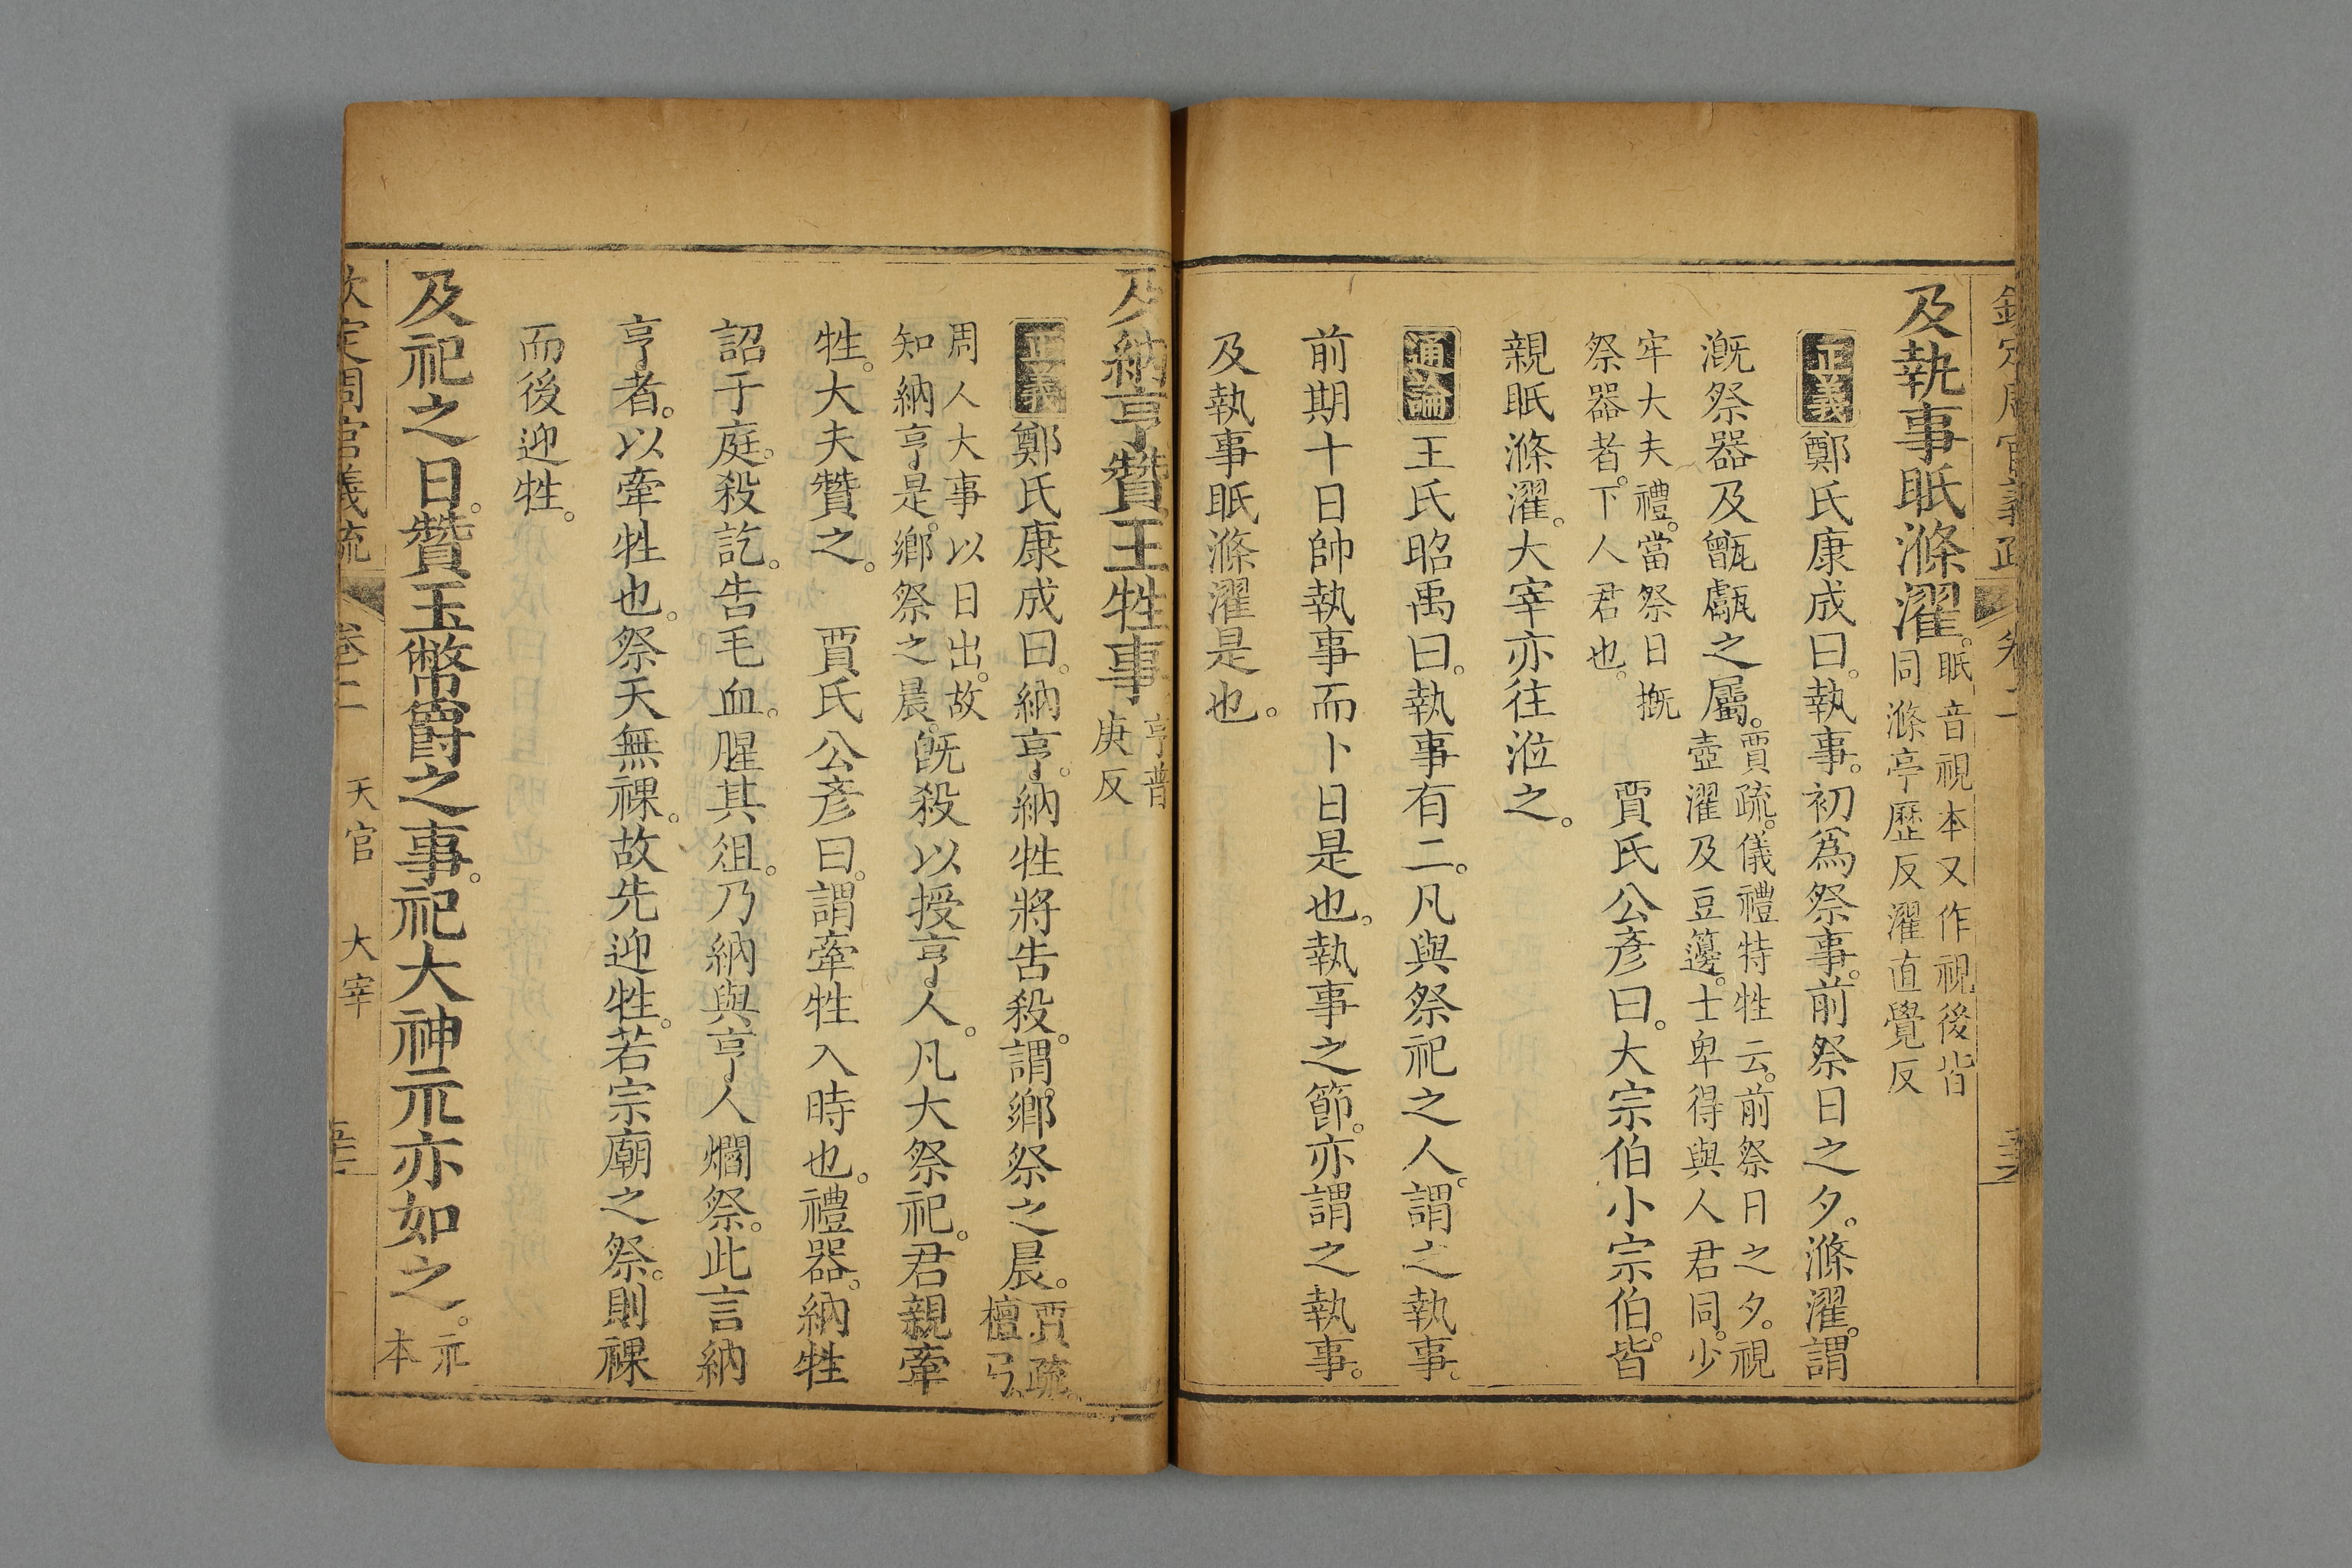 欽定周官義疏 卷二
及執事眂滌濯。眂音視本又作視後皆同滌亭歷反濯直覺反
正義鄭氏康成曰。執事。初爲祭事。前祭日之夕。滌濯。謂
漑祭器及甑甗之屬。賈疏。儀禮特牲云。前祭日之夕。視壺濯及豆籩。士卑得與人君同。少
牢大夫禮。當祭日摡祭器者。下人君也。賈氏公彥曰。大宗伯小宗伯。皆
親眂滌濯。大宰亦往涖之。
通論王氏昭禹曰。執事有二。凡與祭祀之人。謂之執事。
前期十日帥執事而卜日是也。執事之節。亦謂之執事。
及執事眂滌濯是也。
及納亨贊王牲事亨普庚反
正義鄭氏康成曰。納亨。納牲將告殺。謂鄉祭之晨。賈疏。檀弓。
周人大事以日出。故知納亨是。鄉祭之晨。旣殺以授亨人。凡大祭祀。君親牽
牲。大夫贊之。賈氏公彥曰。謂牽牲入時也。禮器。納牲
詔于庭。殺訖。告毛血。腥其俎。乃納與亨人爓祭。此言納
亨者。以牽牲也。祭天無祼。故先迎牲。若宗廟之祭。則祼
而後迎牲。
及祀之日。贊玉幣爵之事。祀大神示亦如之。示本
欽定周官義疏 卷二 天官 大宰